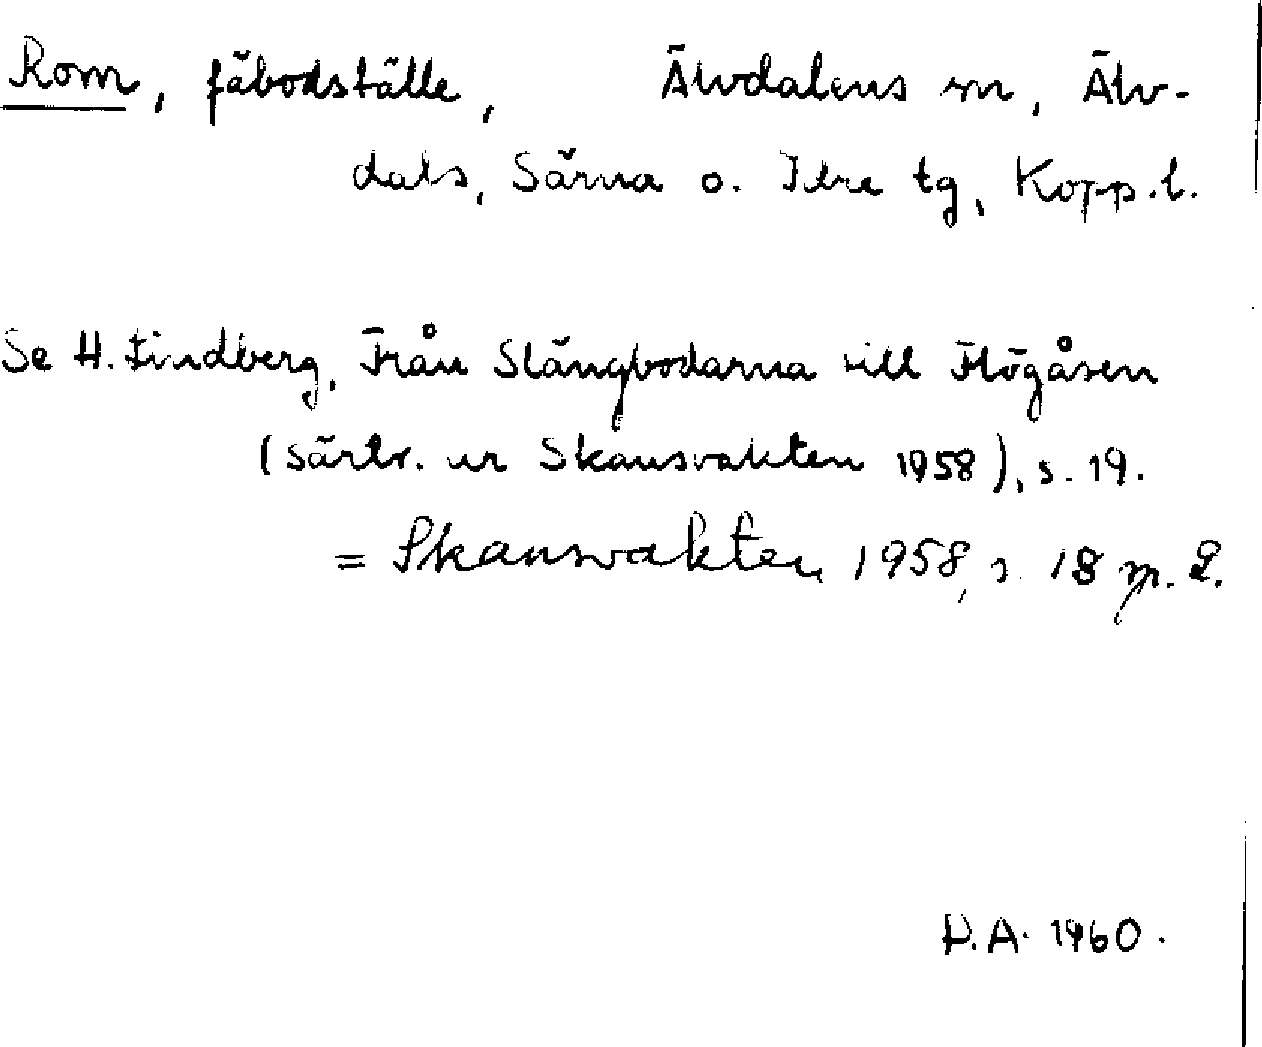 Rom, fäbodställe, Älvdalens sn, Älv-
dals, Särna o. Idre tg, Kopp. l.
Se H. Lindberg, Från Slängbodarna till Flögåsen
(särtr. ur Skansvakten 1958), s. 19.
= Skansvakten 1958, s. 18 sp. 2.
D.A. 1960.